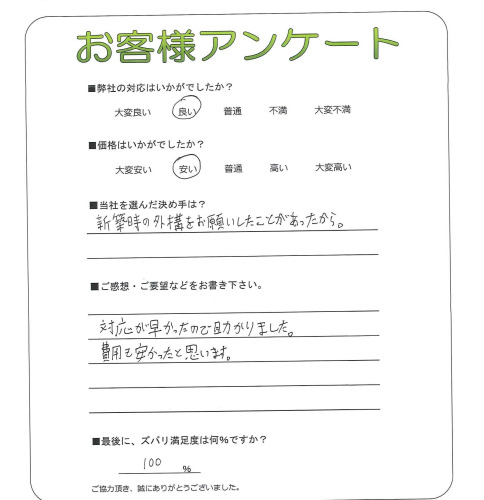 お客様アンケート
■弊社の対応はいかがでしたか？
大変良い 良い 普通 不満 大変不満
■価格はいかがでしたか？
大変安い 安い 普通 高い 大変高い
■当社を選んだ決め手は？
新築時の外構をお願いしたことがあったから。
■ご感想・ご要望などをお書き下さい。
対応が早かったので助かりました。
費用も安かったと思います。
■最後に、ズバリ満足度は何%ですか？
100 %
ご協力頂き、誠にありがとうございました。